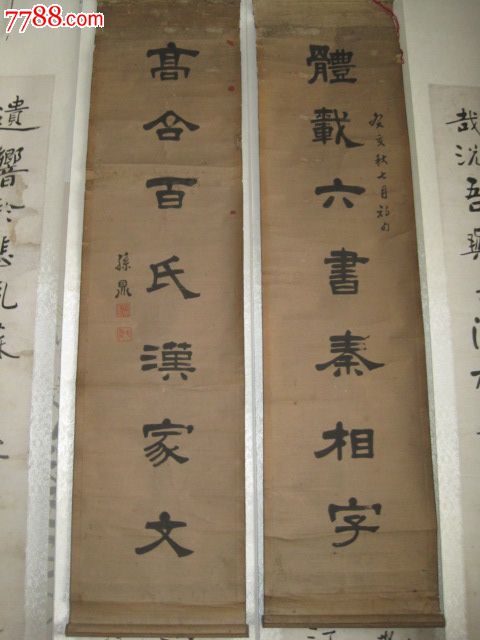 7788.com
體載六書秦相字
癸亥秋七月初旬
高合百氏漢家文
孫鼎
遺響於悲風
哉沈吾與